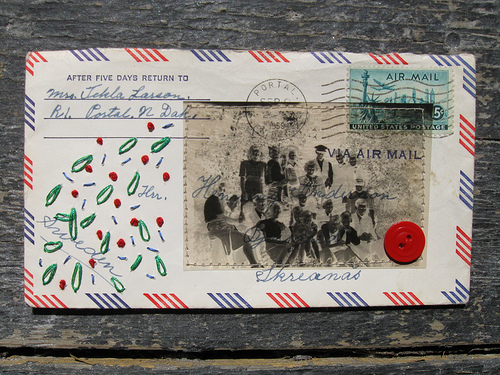 AFTER FIVE DAYS RETURN TO
Mrs. Tekla Larson,
R.1. Portal, N Dak,
PORTAL
AIR MAIL
5¢
UNITED STATES POSTAGE
VIA AIR MAIL
Hrr.
Skreanas
Sweden